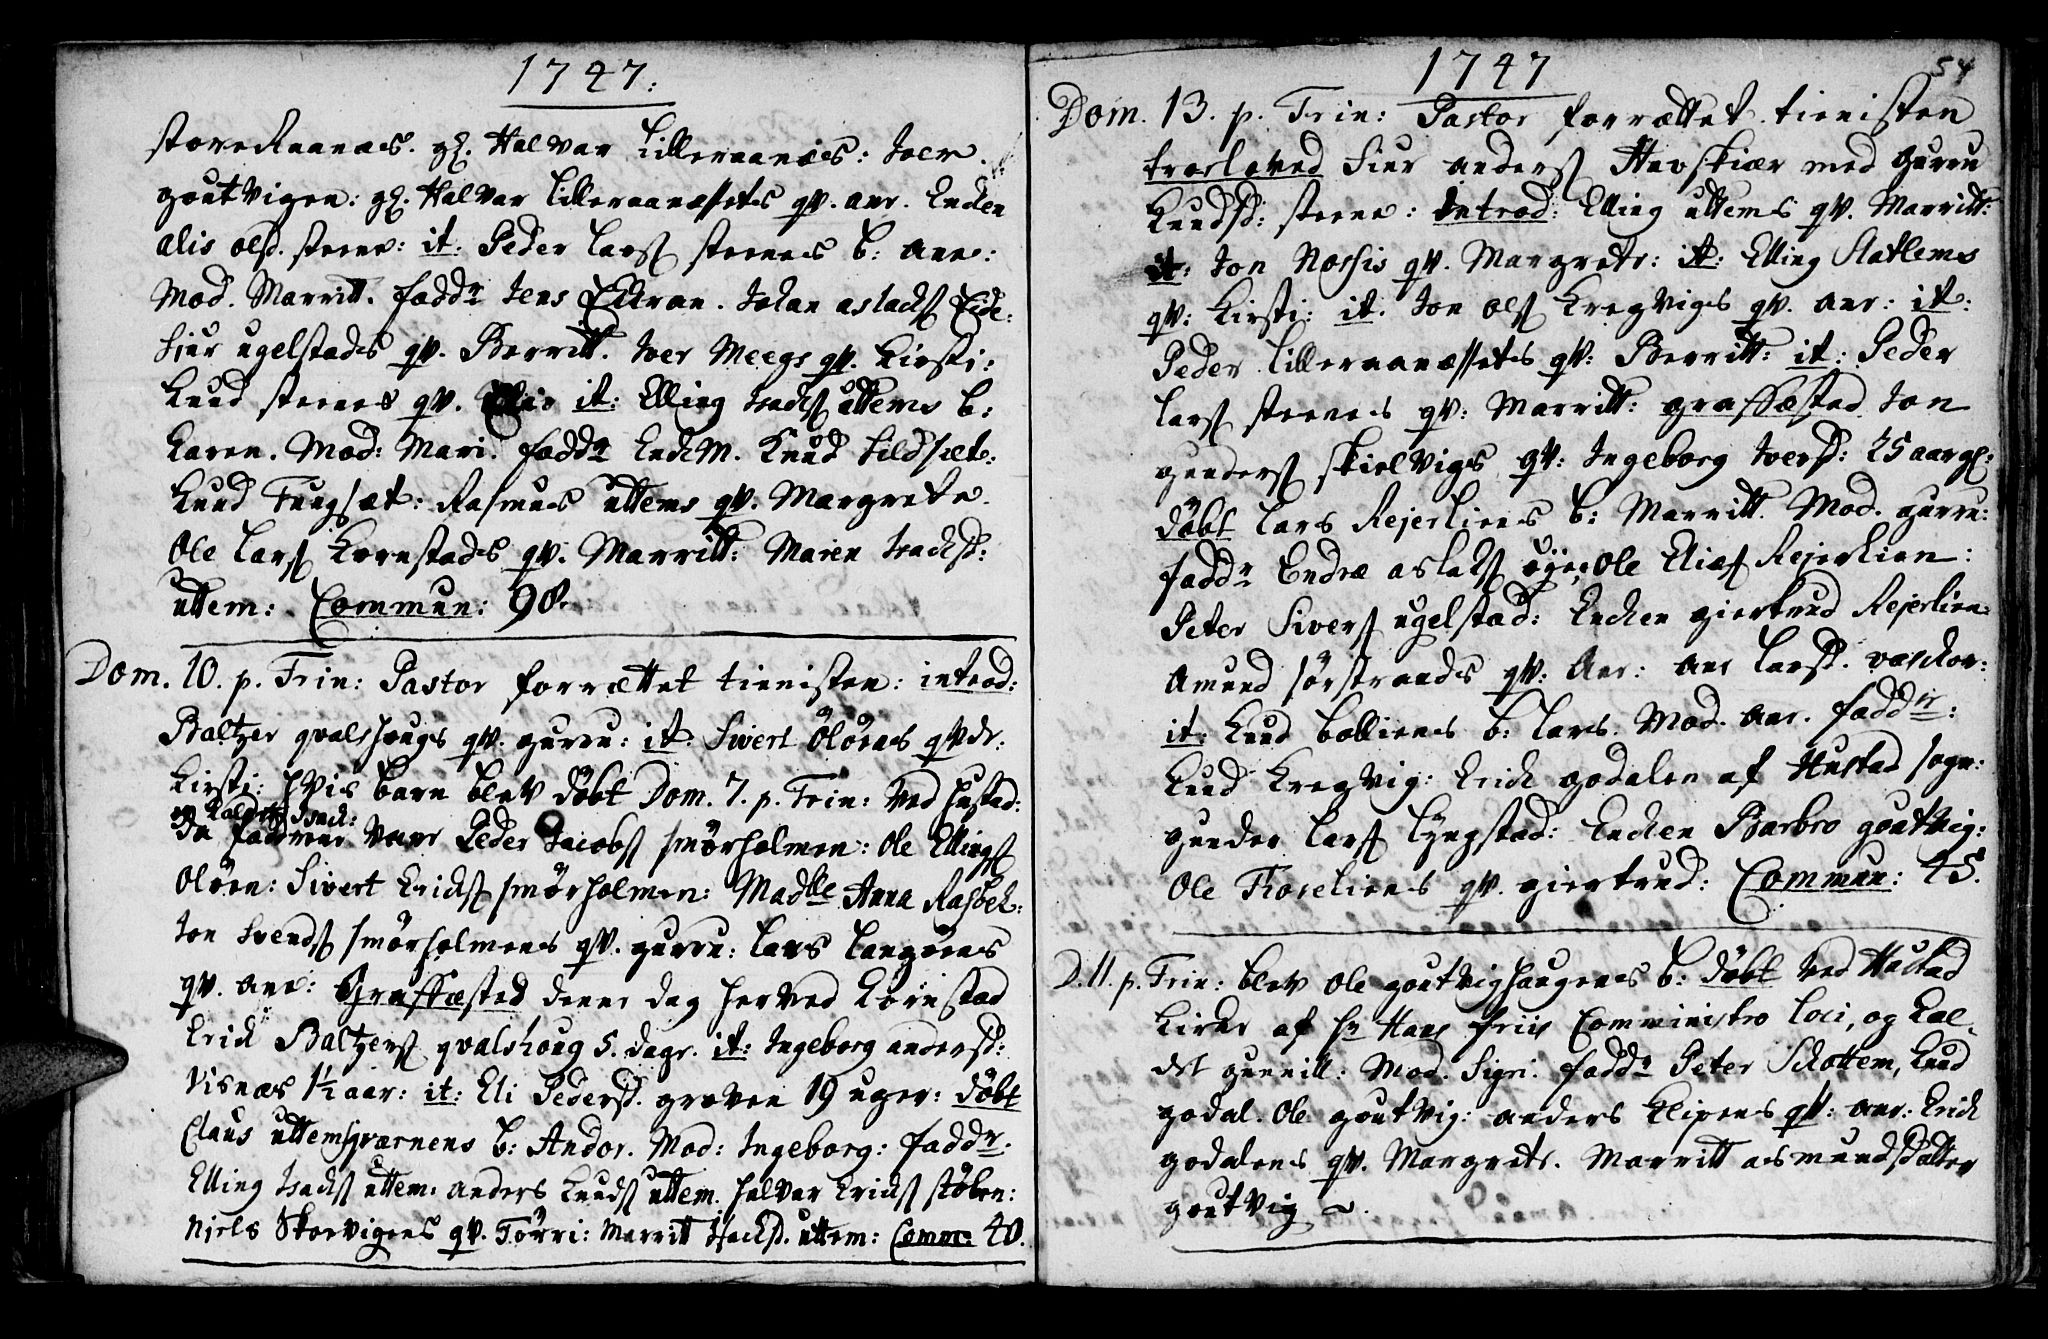 1747:
store Raanæs. gl. Halvar Lilleraanæs: Iver
goutvigen: gl. Halvar Lilleraanæssets qv. ane. Enchen
Alis olsd. steene: it: Peder Lars steenes b: ane:
Mod. Marritt. fadd Jens Eckran. Johan aslachs Eide:
Siur ugelstads qv. Berritt. Iver Meegs qv. Kirsti:
Knud steenes qv. it: Elling Isachs uttems b:
Karen. Mod: Mari. fadd Knud Sildset:
Knud Tungset: Rasmus uttems qv. Margrete.
Ole Lars Kornstads qv. Marritt: Maren Isachsd:
uttem: Commun: 98.
Dom. 10. p. Trin: Pastor forrættet tienisten: introd:
Baltzer qvalshougs qv. gurru: it: Sivert Öloens qvdr.
Kirsti: hvis barn blev döbt Dom. 7. p. Trin: ved Hustad:
og kaldet
da fadderne vare Peder Jacobs smörholmen: Ole Ellings
Olöen: Sivert Ericks smörholmen: Madlle Anna Rasbek:
Jon Svends smörholmens qv. gurru: Lars Langöens
qv. ane: Graffæsted denne dag herved Kornstad
Erick Baltzers qvalshoug 5. dage. it: Ingeborg andersd:
Visnæs 1½ aar: it: Eli Pedersd. groven 19 uger: döbt
Claus uttemsqvernens b: Andor. Mod: Ingeborg: fadd.
Elling Isachs uttem: anders Knuds uttem. halvor Ericks stöben:
Niels Skorvigens qv. Törri: Marritt Isachsd. uttem: Comm: 40.
1747
54
Dom. 13. p. Trin: Pastor forrættet tienisten
troeloved Siur anders Havskiær med gurru
Knudsd: steene: Introd: Elling uttems qv. Marritt:
it: Jon Nossis qv. Margrete: it: Elling Aatlems
qv: Kirsti: it. Jon ols Kregvigs qv. ane: it:
Peder Lilleraanæssets qv: Berritt: it: Peder
Lars steenes qv: Marritt: graffæstad Jon
gunders skielvigs qv: Ingeborg Iversd: 25 aar gl:
döbt Lars Rejerliens b: Marritt. Mod. gurru:
fadd Endre aslaks Ole Elias Rejerlien:
Peter Sivers ugelstad: Enchen giertrud Rejerlien:
Amund sörstrands qv: Ane: ane Larsd. vaschor:
it: Knud bolliens b: Lars. Mod. Ane. fadd:
Knud Kregvig: Erick godalen af Hustad sogn:
gunder Lars Lyngstad: Enchen Barbro goutvig:
Ole Troeliens qv. giertrud: Commun: 45.
D. 11. p. Trin: blev Ole goutvighaugens b: döbt ved Hustad
Kirke af hr Hans Friis Comministro loci, og kal-
det gunnill: Mod. Sigri. fadd Peter Schottem, Knud
godal. Ole goutvig: anders Klipens qv: ane: Erick
godalens qv. Margrete. Marritt asmundsdatter
goutvig